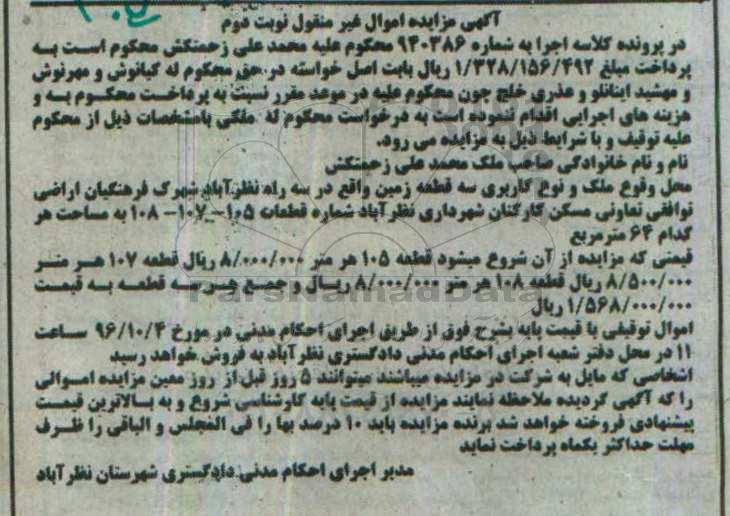 آگهی مزایده اموال غیر منقول نوبت دوم
در پرونده کلاسه اجرا به شماره ۹۴۰۳۸۶ محکوم علیه محمد علی زحمتکش محکوم است به
پرداخت مبلغ ۱/۳۲۸/۱۵۶/۴۹۲ ریال بابت اصل خواسته در حق محکوم له کیانوش و مهرنوش
و مهشید اینانلو و عذری خلج چون محکوم علیه در موعد مقرر نسبت به پرداخت محکوم به و
هزینه های اجرایی اقدام ننموده است به درخواست محکوم له ملکی بامشخصات ذیل از محکوم
علیه توقیف و با شرایط ذیل به مزایده می رود.
نام و نام خانوادگی صاحب ملک محمد علی زحمتکش
محل وقوع ملک و نوع کاربری سه قطعه زمین واقع در سه راه نظرآباد شهرک فرهنگیان اراضی
توافقی تعاونی مسکن کارکنان شهرداری نظرآباد شماره قطعات ۱۰۵-۱۰۷-۱۰۸ به مساحت هر
کدام ۶۴ مترمربع
قیمتی که مزایده از آن شروع میشود قطعه ۱۰۵ هر متر ۸/۰۰۰/۰۰۰ ریال قطعه ۱۰۷ هر متر
۸/۵۰۰/۰۰۰ ریال قطعه ۱۰۸ هر متر ۸/۰۰۰/۰۰۰ ریال و جمع هر سه قطعه به قیمت
۱/۵۶۸/۰۰۰/۰۰۰ ریال
ParsNamadData
اموال توقیفی با قیمت پایه بشرح فوق از طریق اجرای احکام مدنی در مورخ ۹۶/۱۰/۴ ساعت
۱۱ در محل دفتر شعبه اجرای احکام مدنی دادگستری نظرآباد به فروش خواهد رسید
اشخاصی که مایل به شرکت در مزایده میباشند میتوانند ۵ روز قبل از روز معین مزایده اموالی
را که آگهی گردیده ملاحظه نمایند مزایده از قیمت پایه کارشناسی شروع و به بالاترین قیمت
پیشنهادی فروخته خواهد شد برنده مزایده باید ۱۰ درصد بها را فی المجلس و الباقی را ظرف
مهلت حداکثر یکماه پرداخت نماید
مدیر اجرای احکام مدنی دادگستری شهرستان نظرآباد